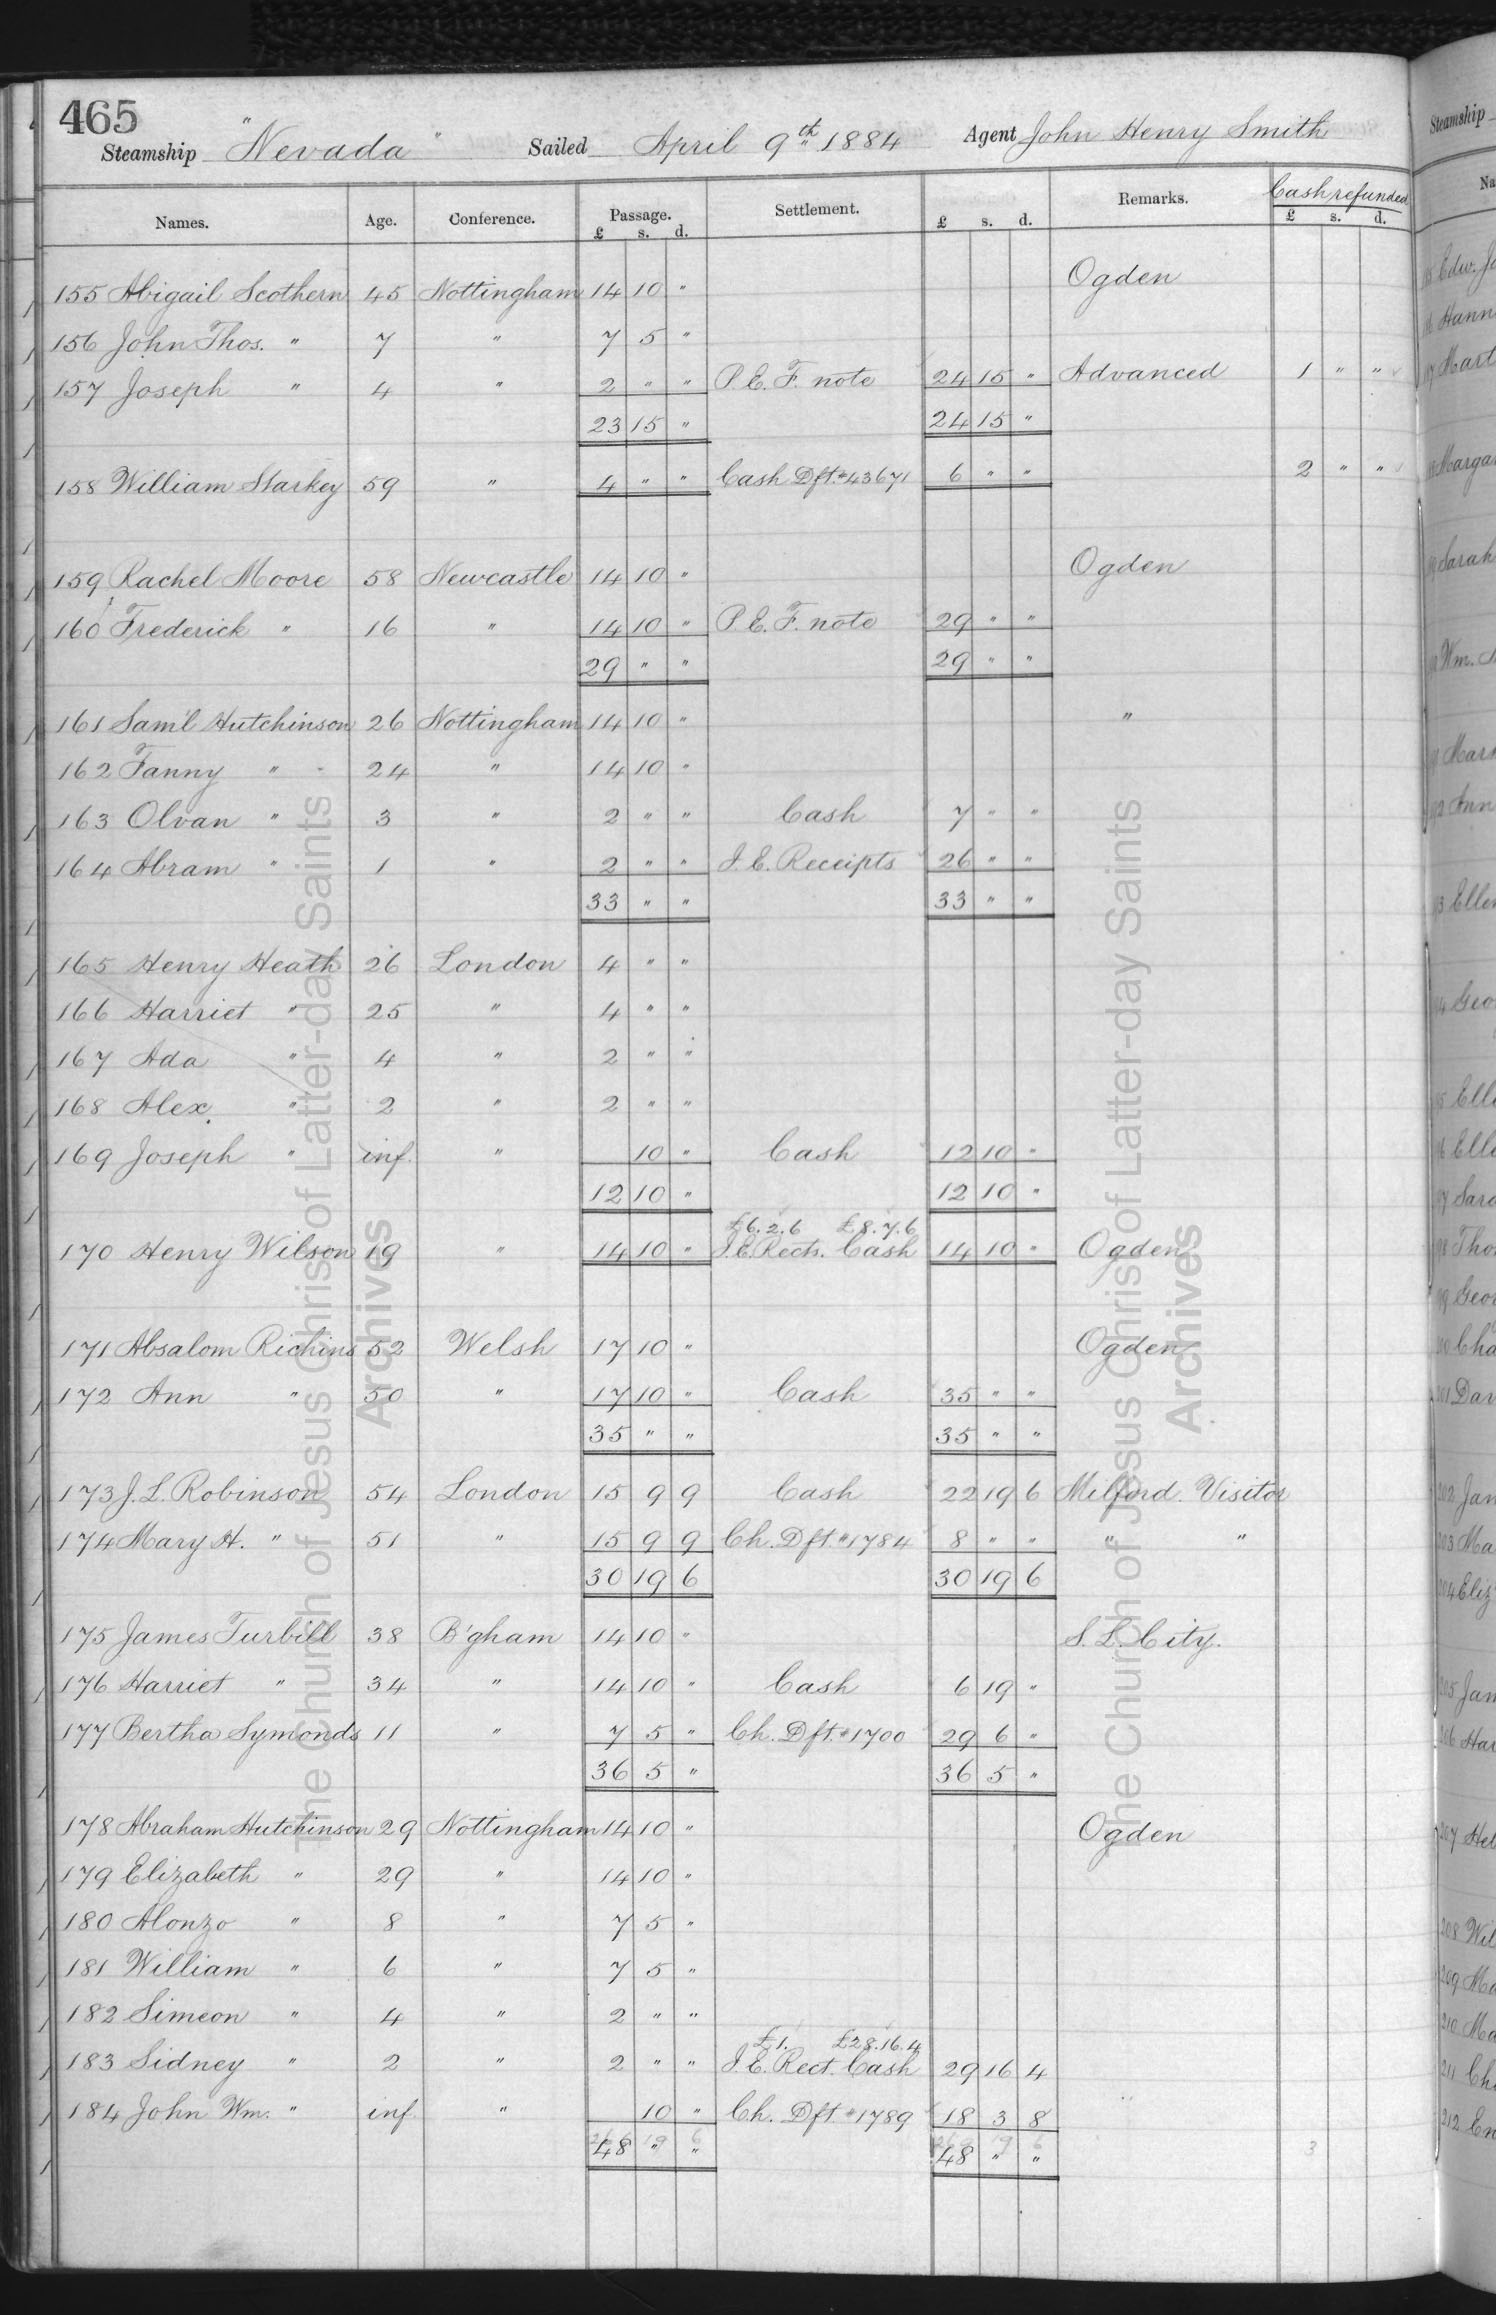 465
Steamship "Nevada" Sailed April 9th 1884 Agent John Henry Smith
Names. Age. Conference. Passage. £ s. d. Settlement. £ s. d. Remarks. Cash refunded £ s. d.
155 Abigail Scothern 45 Nottingham 14 10 " Ogden
156 John Thos. " 7 " 7 5 "
157 Joseph " 4 " 2 " " P. E. F. note 24 15 " Advanced 1 " "
23 15 " 24 15 "
158 William Starkey 59 " 4 " " Cash Dft. #43671 6 " " 2 " "
159 Rachel Moore 58 Newcastle 14 10 " Ogden
160 Frederick " 16 " 14 10 " P. E. F. note 29 " "
29 " " 29 " "
161 Sam'l Hutchinson 26 Nottingham 14 10 " "
162 Fanny " 24 " 14 10 "
163 Olvan " 3 " 2 " " Cash 7 " "
164 Abram " 1 " 2 " " I. E. Receipts 26 " "
33 " " 33 " "
165 Henry Heath 26 London 4 " "
166 Harriet " 25 " 4 " "
167 Ada " 4 " 2 " "
168 Alex. " 2 " 2 " "
169 Joseph " inf. " 10 " Cash 12 10 "
12 10 " 12 10 "
£6.2.6 £8.7.6
170 Henry Wilson 19 " 14 10 " I. E. Rects. Cash 14 10 " Ogden
171 Absalom Richins 52 Welsh 17 10 " Ogden
172 Ann " 50 " 17 10 " Cash 35 " "
35 " " 35 " "
173 J. L. Robinson 54 London 15 9 9 Cash 22 19 6 Milford. Visitor
174 Mary H. " 51 " 15 9 9 Ch. Dft. #1784 8 " " " "
30 19 6 30 19 6
175 James Turbill 38 B'gham 14 10 " S. L. City.
176 Harriet " 34 " 14 10 " Cash 6 19 "
177 Bertha Symonds 11 " 7 5 " Ch. Dft. #1700 29 6 "
36 5 " 36 5 "
178 Abraham Hutchinson 29 Nottingham 14 10 " Ogden
179 Elizabeth " 29 " 14 10 "
180 Alonzo " 8 " 7 5 "
181 William " 6 " 7 5 "
182 Simeon " 4 " 2 " "
£1. £28.16.4
183 Sidney " 2 " 2 " " I. E. Rect. Cash 29 16 4
184 John Wm. " inf. " 10 " Ch. Dft. #1789 18 3 8
48 " " 48 " "
3
The Church of Jesus Christ of Latter-day Saints
Archives
The Church of Jesus Christ of Latter-day Saints
Archives
Steamship